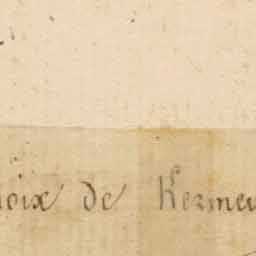 oix de Kermeu